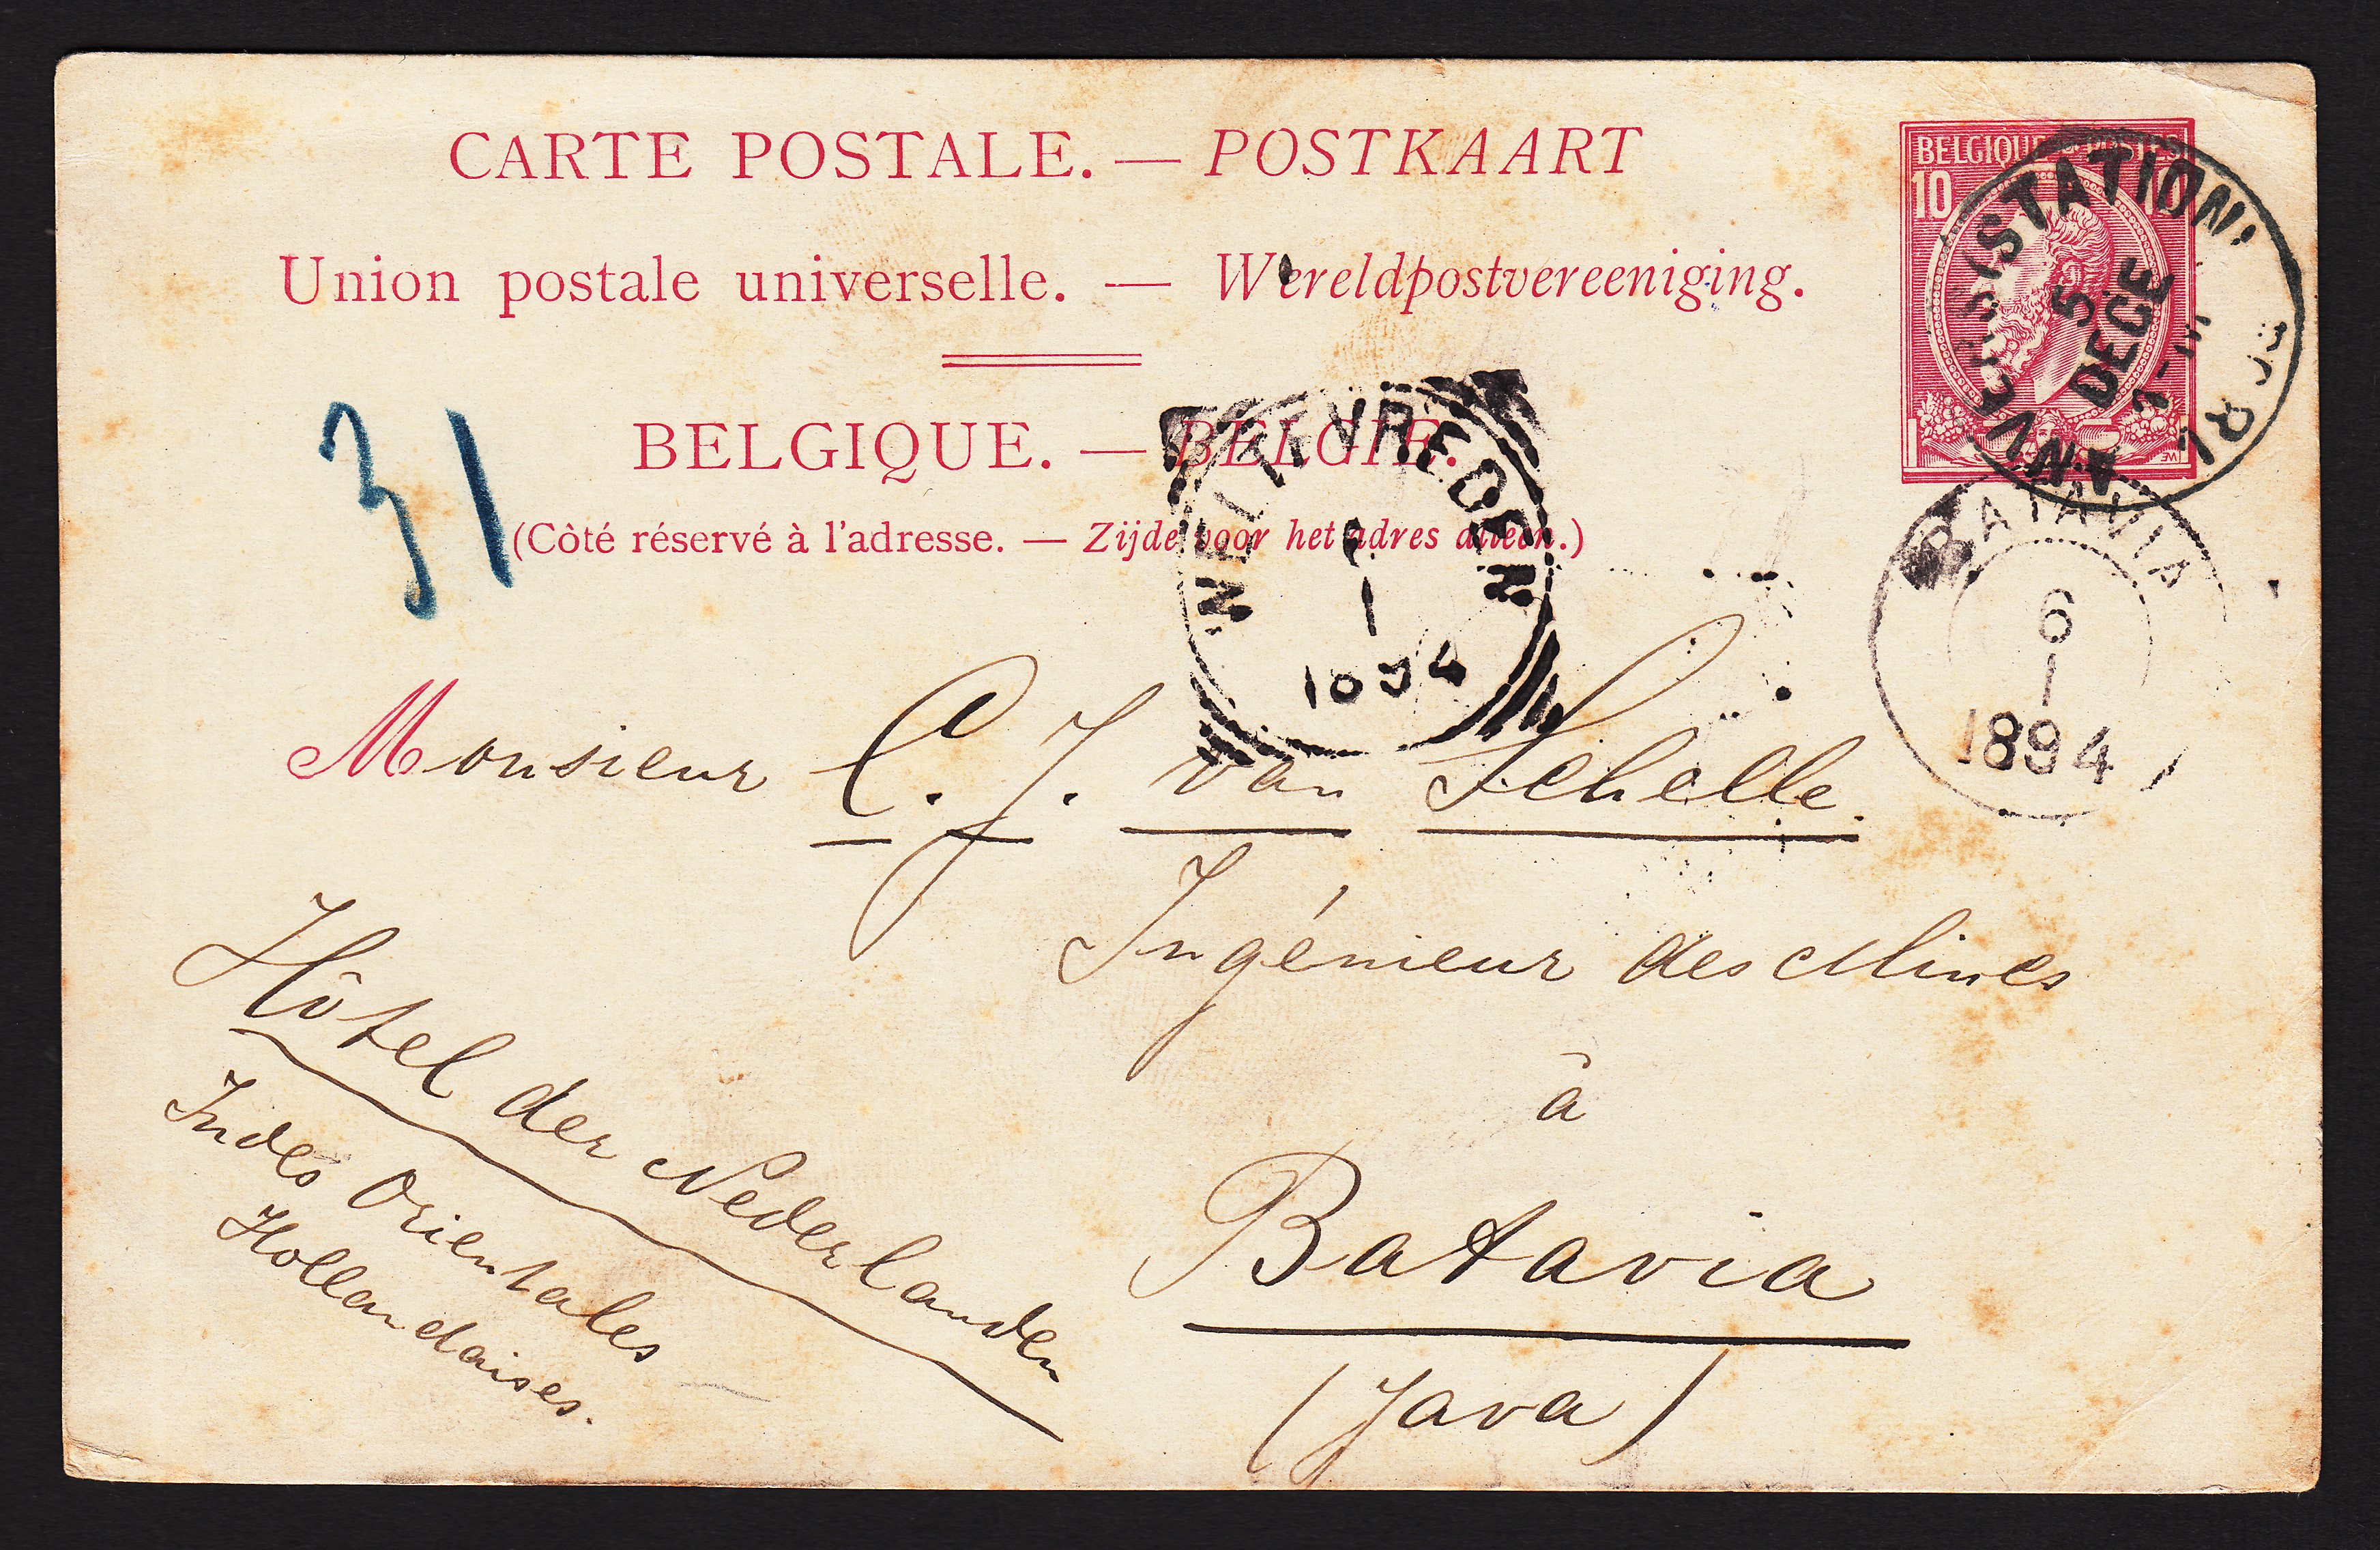 CARTE POSTALE. — POSTKAART
Union postale universelle. — Wereldpostvereeniging.
BELGIQUE. — BELGIË.
(Côté réservé à l'adresse. — Zijde voor het adres alleen.)
BELGIQUE POSTES
10 10
ANVERS (STATION)
5
DECE
31
WELTEVREDEN
1
1894
BATAVIA
6
1
1894
Monsieur C. J. van Schelle.
Ingénieur des Mines
à
Batavia
(Java)
Hôtel der Nederlanden
Indes Orientales
Hollandaises.